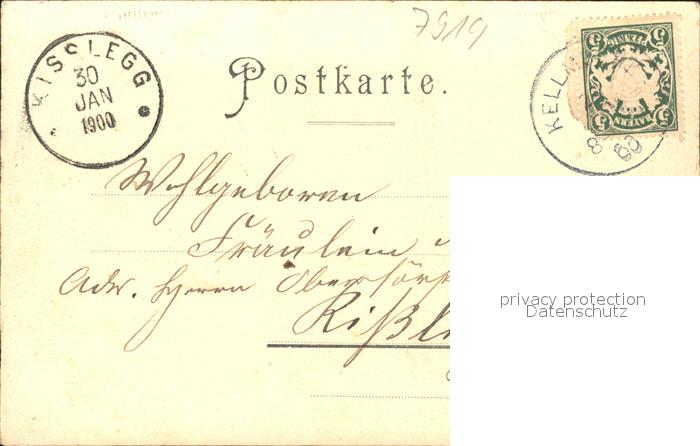 7919
KISSLEGG
30
JAN
1900
Postkarte.
KELL
8
5 PFENNIG 5
5 BAYERN 5
Wohlgeboren
Fräulein
Adr. Herrn Oberförst
Kißl
privacy protection
Datenschutz